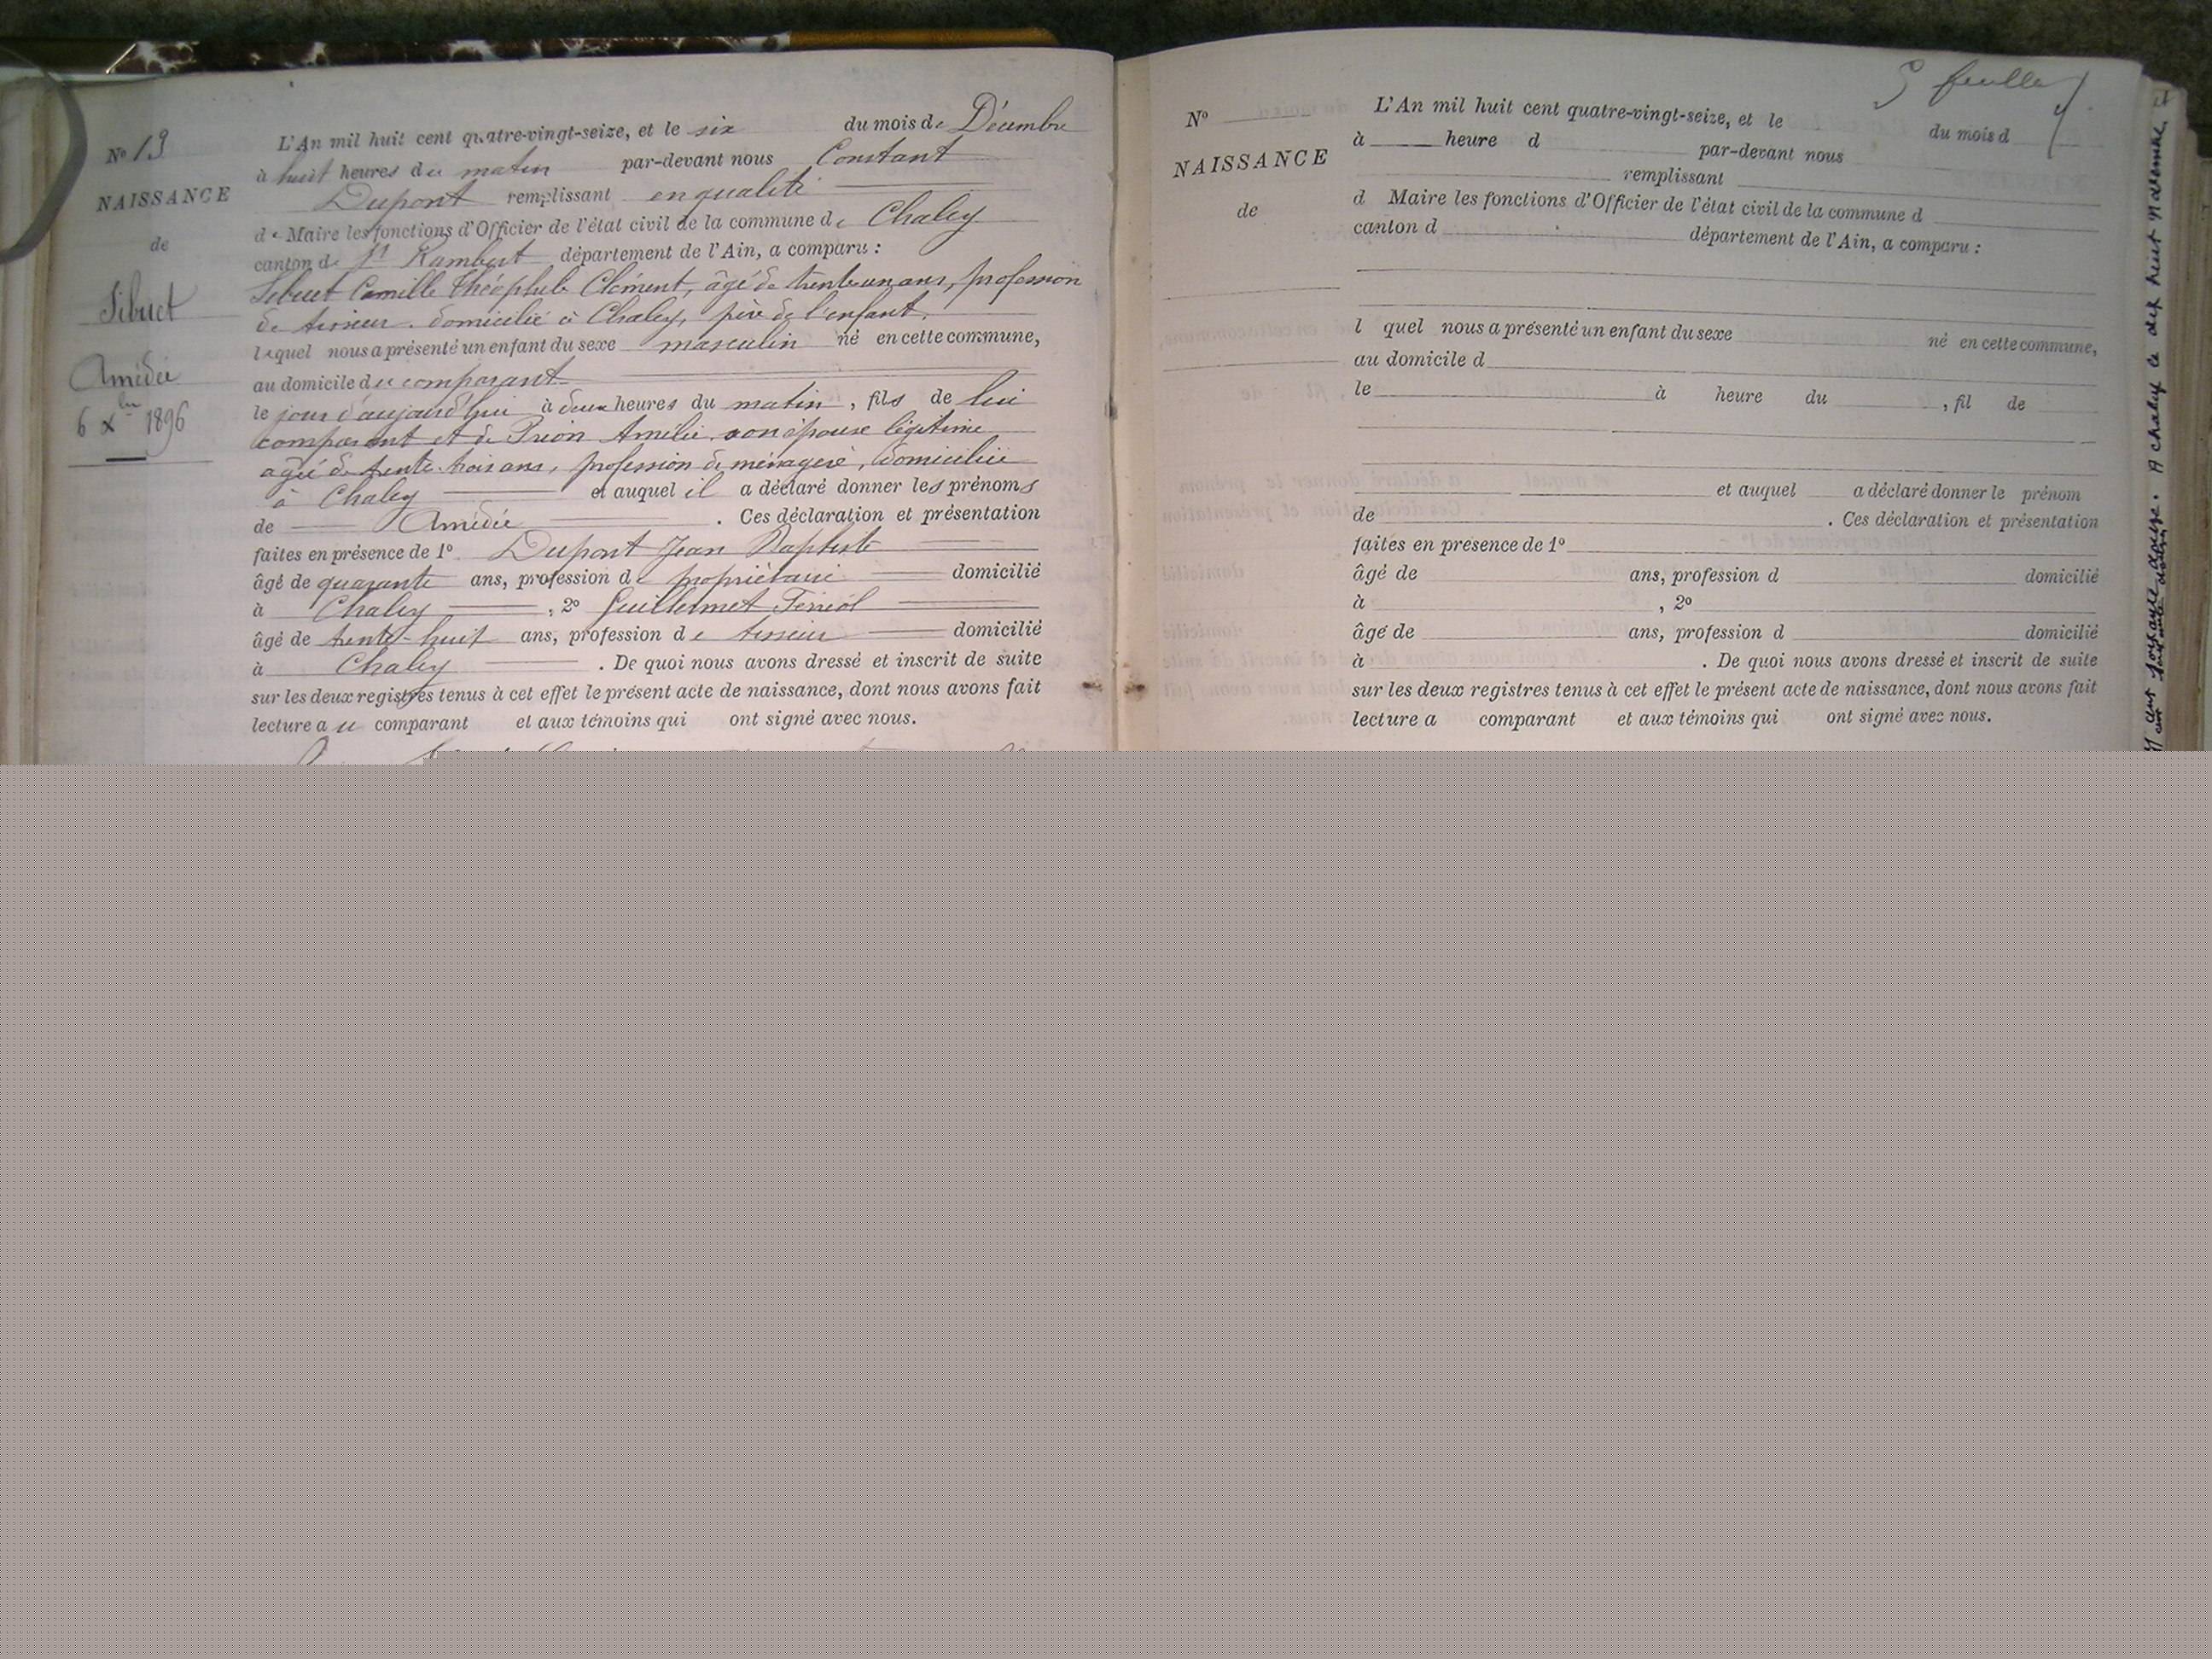 N° 19
NAISSANCE
de
Sibuet
Amédée
6 Xbre 1896
L'An mil huit cent quatre-vingt-seize, et le six du mois de Décembre
à huit heures du matin par-devant nous Constant
Dupont remplissant en qualité
de Maire les fonctions d'Officier de l'état civil de la commune de Chaley
canton de St Rambert département de l'Ain, a comparu :
Sibuet Camille Théophile Clément, âgé de trente un ans, profession
de tisseur domicilié à Chaley, père de l'enfant,
lequel nous a présenté un enfant du sexe masculin né en cette commune,
au domicile du comparant
le jour d'aujourd'hui à deux heures du matin, fils de lui
comparant et de Prion Amélie son épouse légitime
agée de trente trois ans, profession de ménagère, domiciliée
à Chaley et auquel il a déclaré donner les prénoms
de Amédée . Ces déclaration et présentation
faites en présence de 1° Dupont Jean Baptiste
âgé de quarante ans, profession de propriétaire domicilié
à Chaley , 2° Guillermet Ferréol
âgé de trente-huit ans, profession de tisseur domicilié
à Chaley . De quoi nous avons dressé et inscrit de suite
sur les deux registres tenus à cet effet le présent acte de naissance, dont nous avons fait
lecture au comparant et aux témoins qui ont signé avec nous.
feuille
N°
NAISSANCE
de
L'An mil huit cent quatre-vingt-seize, et le du mois d
à heure d par-devant nous
remplissant
d Maire les fonctions d'Officier de l'état civil de la commune d
canton d département de l'Ain, a comparu :
l quel nous a présenté un enfant du sexe né en cette commune,
au domicile d
le à heure du , fil de
et auquel a déclaré donner le prénom
de . Ces déclaration et présentation
faites en présence de 1°
âgé de ans, profession d domicilié
à , 2°
âgé de ans, profession d domicilié
à . De quoi nous avons dressé et inscrit de suite
sur les deux registres tenus à cet effet le présent acte de naissance, dont nous avons fait
lecture a comparant et aux témoins qui ont signé avec nous.
A chaley le dix huit novembre